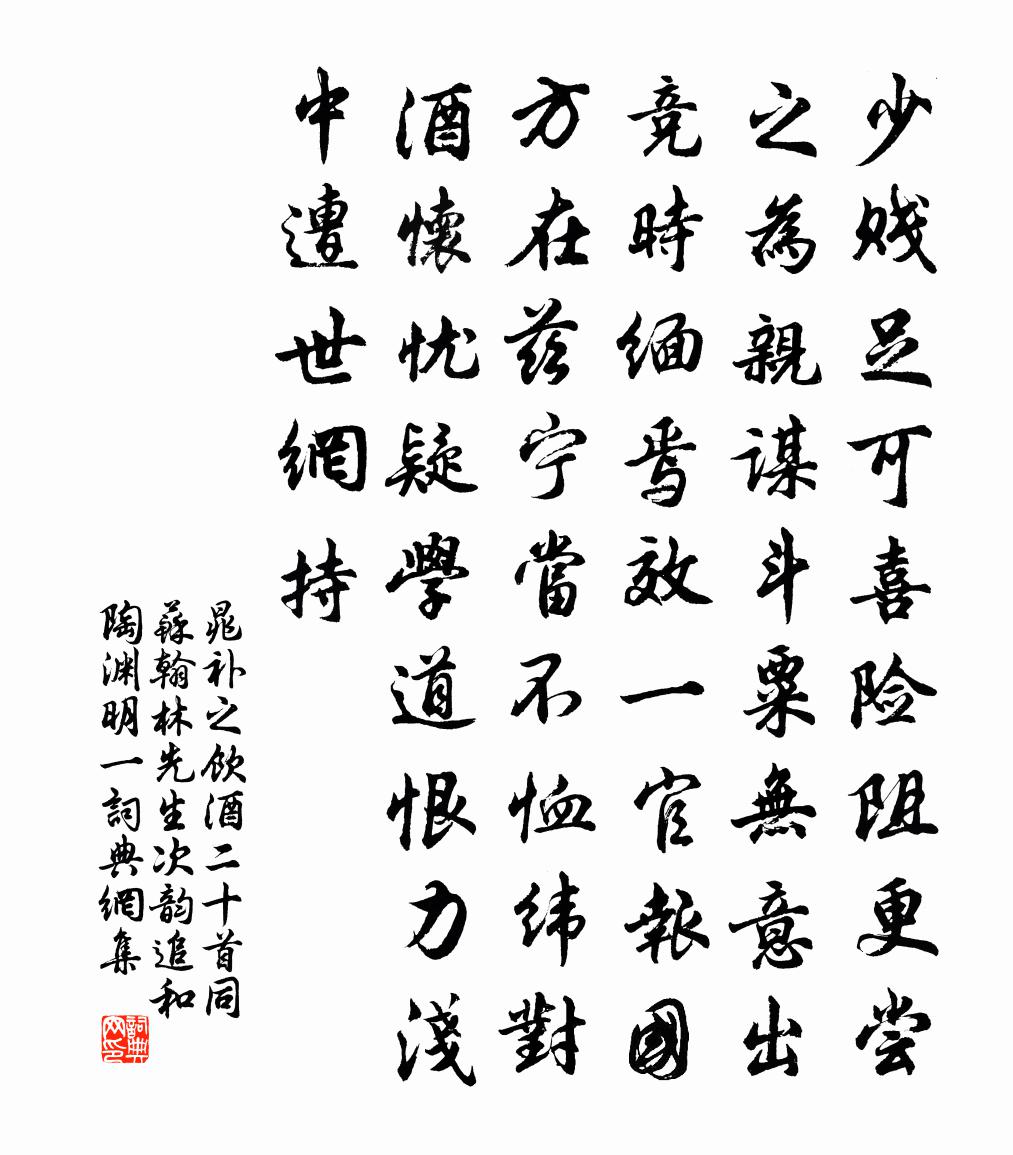 少贱足可喜险阻更尝
之為親謀斗粟無意出
竞時緬焉效一官報國
方在茲宁當不恤纬對
酒懷忧疑學道恨力淺
中遭世網持
晁补之飲酒二十首同
蘇翰林先生次韵追和
陶渊明一詞典網集
詞典
网印